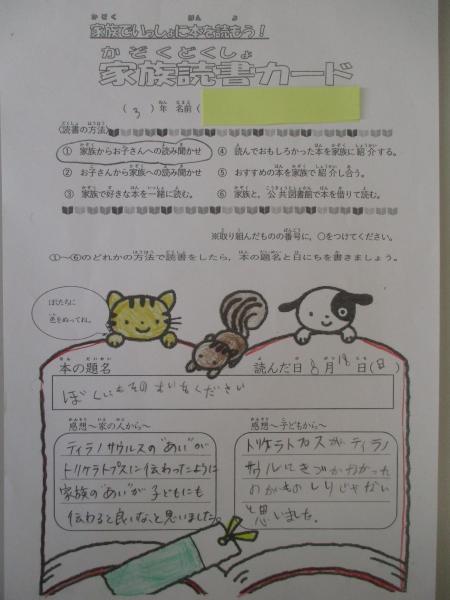 家族でいっしょに本を読もう!
家族読書カード
(3)年 名前(
〈読書の方法〉
① 家族からお子さんへの読み聞かせ
② お子さんから家族への読み聞かせ
③ 家族で好きな本を一緒に読む。
④ 読んでおもしろかった本を家族に紹介する。
⑤ おすすめの本を家族で紹介し合う。
⑥ 家族と、公共図書館で本を借りて読む。
※取り組んだものの番号に、○をつけてください。
①~⑥のどれかの方法で読書をしたら、本の題名と日にちを書きましょう。
ぼくたちに
色をぬってね。
本の題名
読んだ日 8月18日(日)
ぼくにもそのあいをください
感想~家の人から~
ティラノサウルスの“あい”が
トリケラトプスに伝わったように
家族の“あい”が子どもにも
伝わると良いな、と思いました。
感想~子どもから~
トリケラトプスがティラノ
サウルに
と思いました。